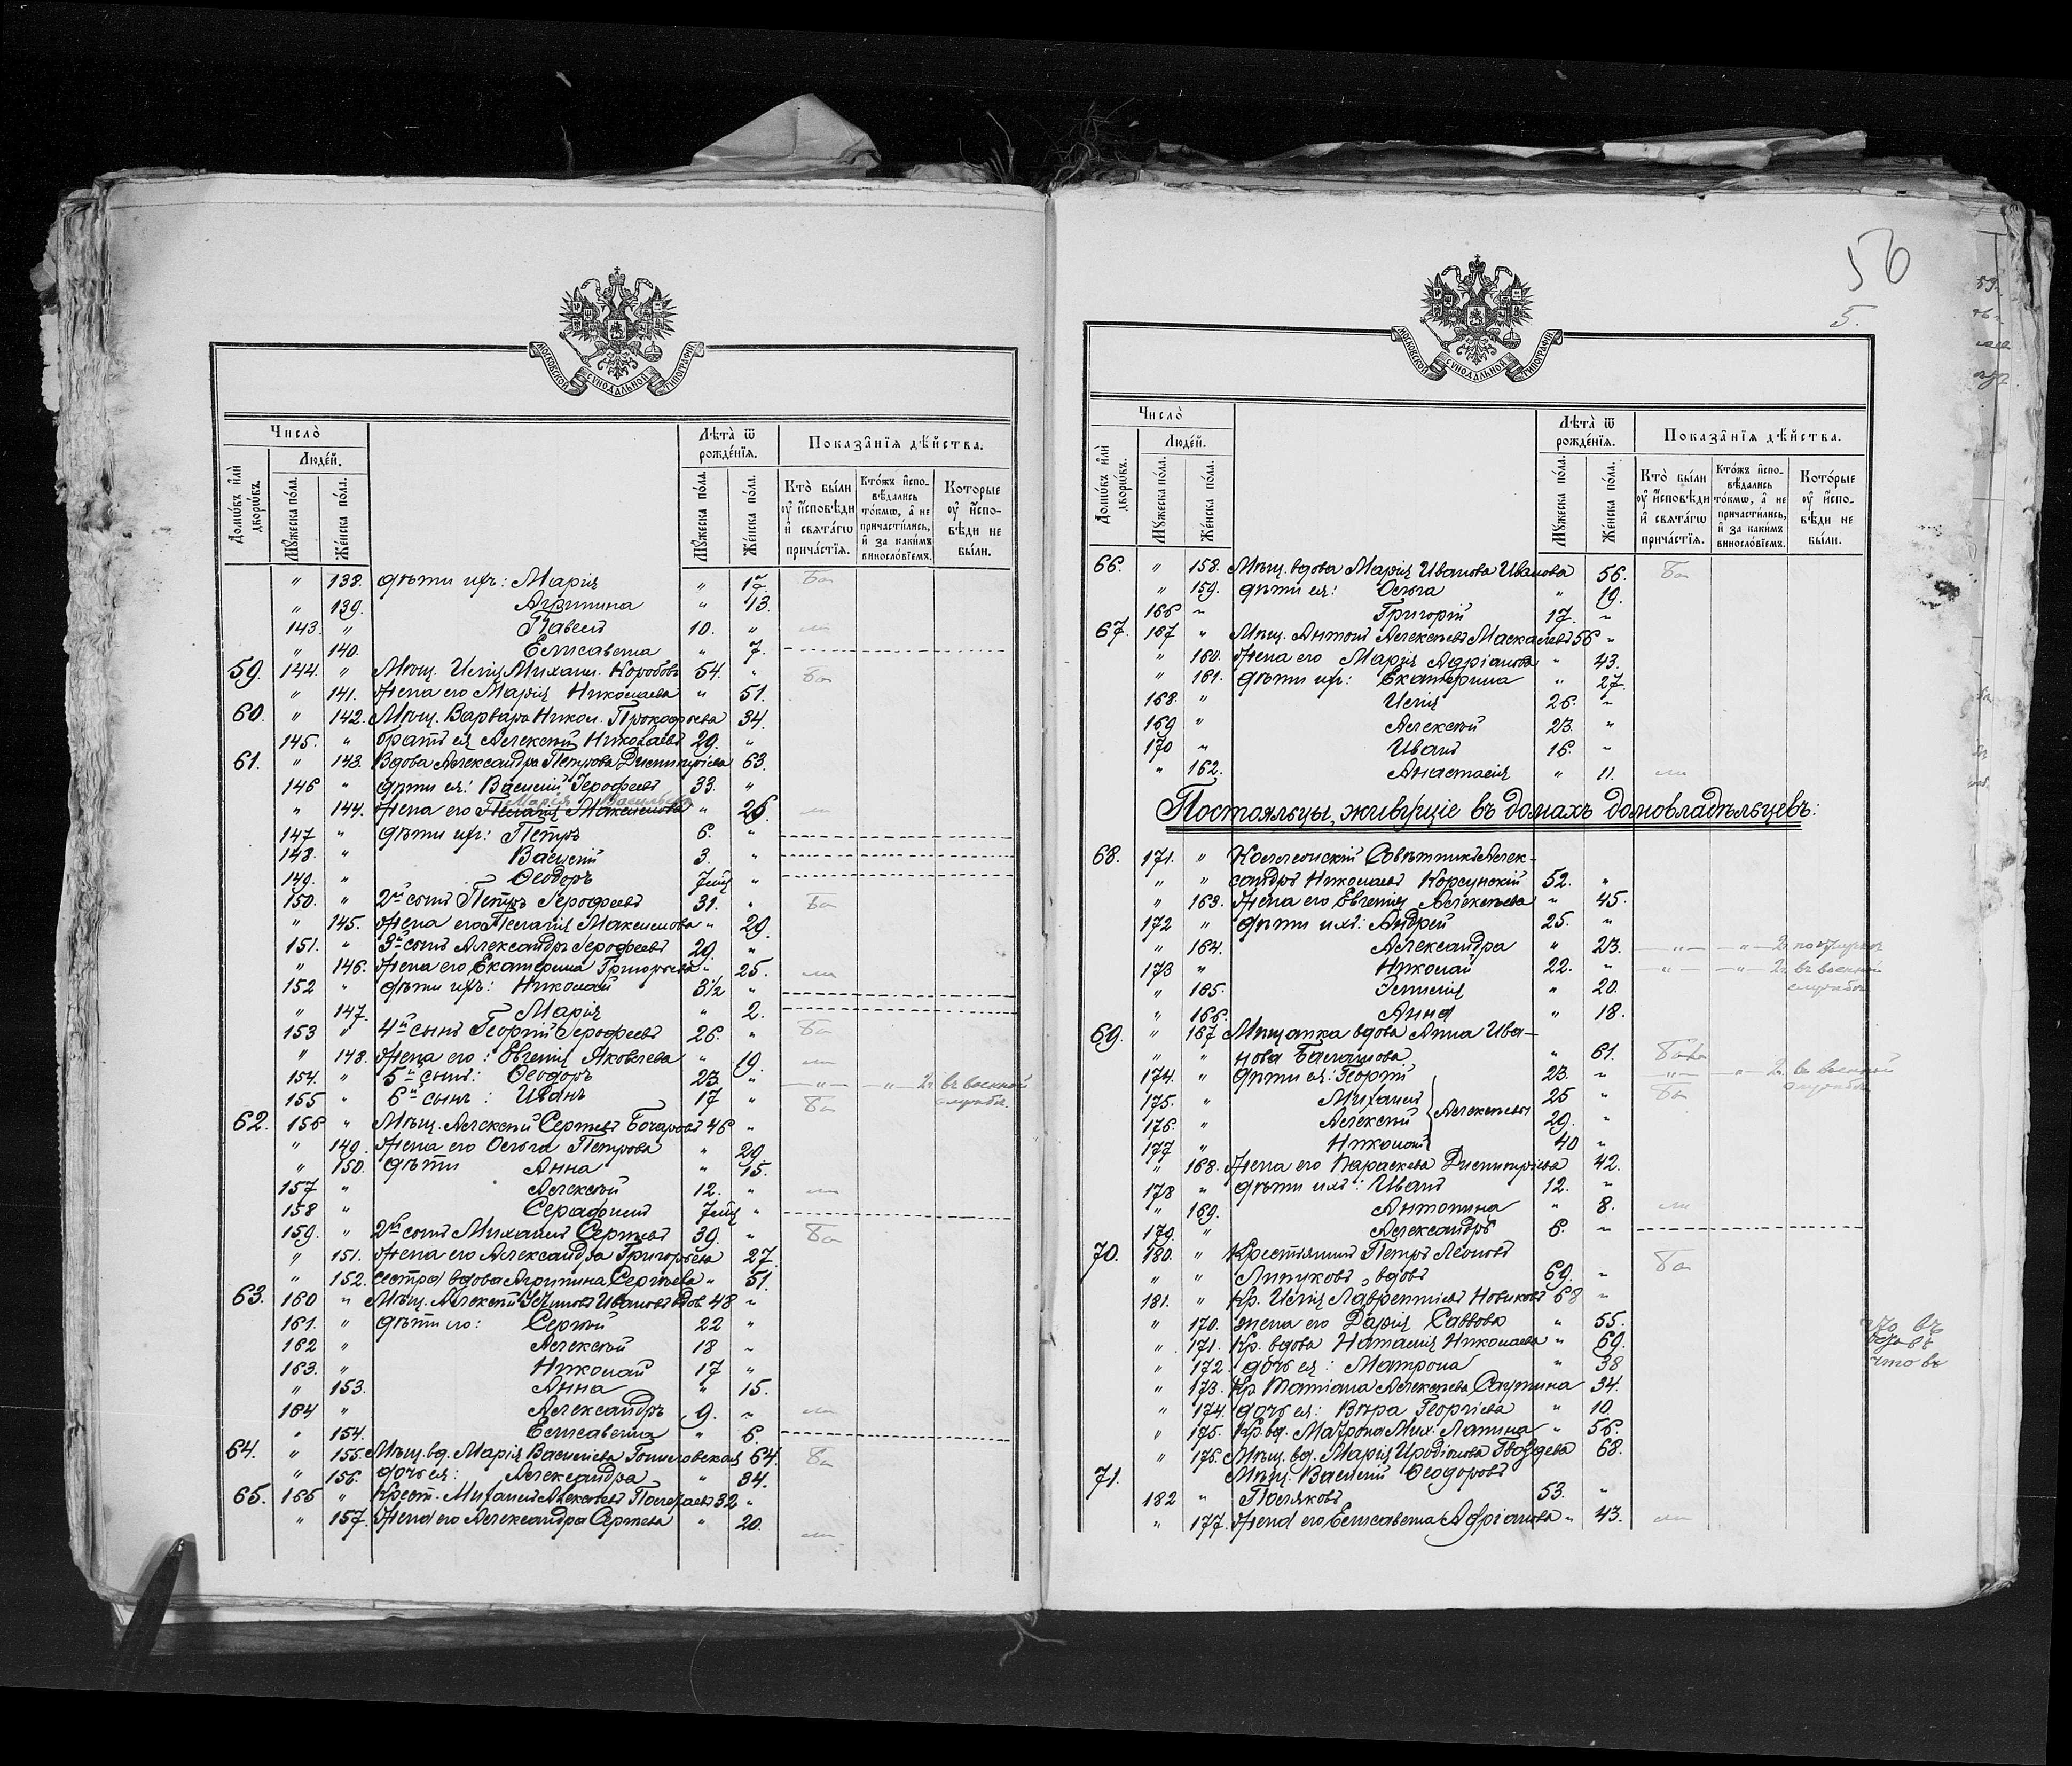 МОСКОВСКОЙ СѴНОДАЛЬНОЙ ТИПОГРАФІИ
Число̀
Людéй.
Лѣта̀ ѿ рождéнїѧ.
Показа̂нїѧ дѣ́йства.
Домѡ́къ и҆лѝ дворѡ́къ.
Мꙋ́жеска по́ла.
Же́нска по́ла.
Мꙋ́жеска по́ла.
Же́нска по́ла.
Кто̀ бы́ли ᲂу҆ и҆сповѣ́ди и҆ свѧта́гѡ прича́стїѧ.
Кто́жъ и҆сповѣ́дались то́кмѡ, а҆ не причасти́лись, и҆ за каки́мъ винословїемъ.
Которые ᲂу҆ и҆сповѣ́ди не бы́ли.
" 138. дѣти ихъ: Марія " 17. Бы
" 139. Агрипина " 13.
143. " Павелъ 10. " ли
" 140. Елисавета " 7.
59. 144. " Мѣщ. Илія Михаил. Коробовъ 54. " Бы
" 141. Жена его Марія Николаева " 51.
60. " 142. Мѣщ. Варвара Никол. Прокофьева 34.
145. " братъ ея Алексѣй Николаевъ 29. "
61. " 143. Вдова Александра Петрова Димитріева 63.
146 " дѣти ея: Василій Іерофеевъ 33. "
Марія Васильева
" 144. Жена его Пелагія Максимова " 26. ли
147 " дѣти ихъ: Петръ 6. "
148. " Василій 3. "
149. " Ѳеодоръ "
150. " 2й сынъ Петръ Іерофеевъ 31. " Бы
" 145. Жена его Пелагія Максимова " 29.
151. " 3й сынъ Александръ Іерофеевъ 29. "
" 146. Жена его Екатерина Григорьева " 25. ли
152 " дѣти ихъ: Николай 3½ "
" 147. Марія " 2.
153 " 4й сынъ Георгій Іерофеевъ 26. " Бы
" 148. Жена его: Евгенія Яковлева " 19. ли
154. " 5й сынъ: Ѳеодоръ 23. " — " — — " — въ военной
155 " 6й сынъ: Иванъ 17 " Бы службѣ.
62. 156 " Мѣщ. Алексѣй Сергѣевъ Бочаровъ 46 "
" 149. Жена его Ольга Петрова " 29.
" 150. дѣти Анна " 15.
157 " Алексѣй 12. " ли
158 " Серафимъ "
159. " 2й сынъ Михаилъ Сергѣевъ 39. " Бы
" 151. Жена его Александра Григорьева 27.
" 152. сестра вдова Агрипина Сергѣева " 51.
63. 160 " Мѣщ. Алексѣй Ивановъ вдов. 48 "
161. " дѣти его: Сергѣй 22 "
162 " Алексѣй 18 "
163. " Николай 17 "
" 153. Анна " 15.
164 " Александръ 9. " ли
" 154. Елисавета " 6.
64. " 155. Мѣщ. вд. Марія Васильева 64. Бы
" 156. дочь ея: Александра " 34.
65. 165 " Крест. Михаилъ Алексѣевъ 32 "
" 157. Жена его Александра Сергѣева " 20. ли
56
5.
МОСКОВСКОЙ СѴНОДАЛЬНОЙ ТИПОГРАФІИ
Число̀
Людéй.
Лѣта̀ ѿ рождéнїѧ.
Показа̂нїѧ дѣ́йства.
Домѡ́къ и҆лѝ дворѡ́къ.
Мꙋ́жеска по́ла.
Же́нска по́ла.
Мꙋ́жеска по́ла.
Же́нска по́ла.
Кто̀ бы́ли ᲂу҆ и҆сповѣ́ди и҆ свѧта́гѡ прича́стїѧ.
Кто́жъ и҆сповѣ́дались то́кмѡ, а҆ не причасти́лись, и҆ за каки́мъ винословїемъ.
Кото́рые ᲂу҆ и҆сповѣ́ди не бы́ли.
66. " 158. Мѣщ. вдова Марія Иванова Иванова 56. Бы
" 159. дѣти ея: Ольга " 19.
166 " Григорій 17. "
67. 167 " Мѣщ. Антонъ Алексѣевъ Маскалевъ 56 "
" 160. Жена его Марія Адріанова " 43.
" 161. дѣти ихъ: Екатерина " 27.
168. " Илія 26. "
169 " Алексѣй 23. "
170 " Иванъ 16. "
" 162. Анастасія " 11. ли
Постояльцы, живущіе въ домахъ домовладѣльцевъ:
68. 171. " Коллежскій Совѣтникъ Алек-
" " сандръ Николаевъ Корсунскій 52. "
" 163. Жена его Евгенія Алексѣева " 45.
172 " дѣти ихъ: Андрей 25. "
" 164. Александра " 23. — " — — " —
173 " Николай 22. " — " — — " — въ военной
" 165. " 20. службѣ
" 166. Анна " 18.
69. " 167 Мѣщанка вдова Анна Ива-
" " нова Балашова " 61. Бы
174. " дѣти ея: Георгій 23. " — " — " въ военной
175. " Михаилъ 25 " Бы службѣ
176. " Алексѣй } Алексѣевы 29. "
177 " Николай 40 "
" 168. Жена его Параскева Димитріева 42.
178 " дѣти ихъ: Иванъ 12. "
" 169. Антонина " 8. ли
179. " Александръ 6. "
70. 180. " Крестьянинъ Петръ Леоновъ Бы
" " вдовъ 69. "
181. " Кр. Илія Лаврентіевъ Новиковъ 68 "
" 170. жена его Дарія Саввова " 55.
" 171. Кр. вдова Наталія Николаева " 69.
" 172. дочь ея: Матрона " 38
" 173. Кр. Татіана Алексѣева 34.
" 174. дочь ея: Вѣра Георгіева " 10.
" 175. Кр. вд. Матрона Мих. Лапина " 56.
" 176. Мѣщ. вд. Марія Иродіонова Гвоздева 68.
71. Мѣщ. Василій Ѳеодоровъ
182 " Поляковъ 53. "
" 177. Жена его Елисавета Адріанова " 43. ли